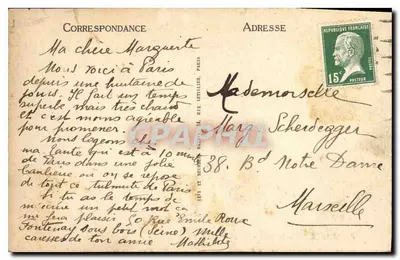 CORRESPONDANCE
Ma chère Marguerite
Nous voici à Paris
depuis une huitaine de
jours. Il fait un temps
superbe, mais très chaud
et c'est moins agréable
pour promener.
Nous logeons chez
ma tante qui est à 10 min
de Paris dans une jolie
banlieue où on se repose
de tout ce tulmulte de Paris
si tu as le temps de
m'écrire un petit mot ça
me fera plaisir 50 Rue Emile Roux
Fontenay sous bois (Seine) Mille
causes de ton amie
Mathilde
ADRESSE
RÉPUBLIQUE FRANÇAISE
15c
POSTES
PASTEUR
Mademoiselle
Marg. Scherdegger
38. Bd Notre Dame
Marseille
CPAPHIL